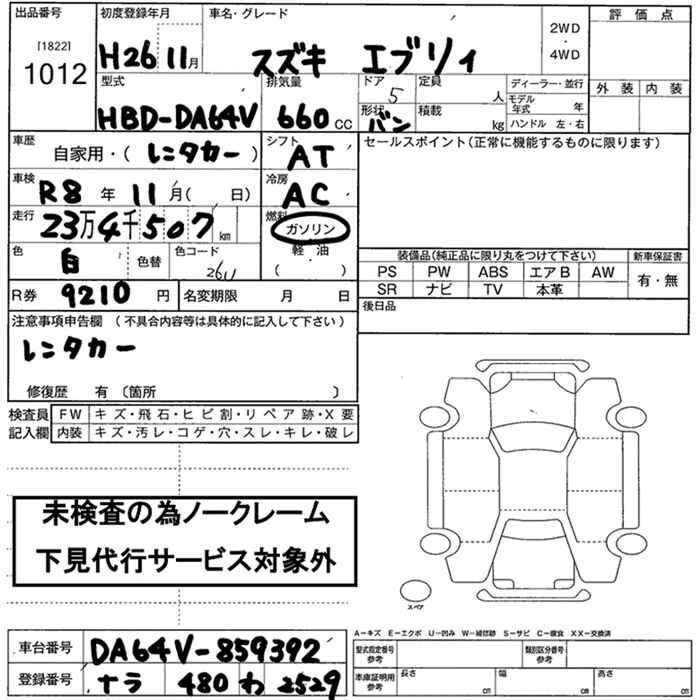 出品番号 初度登録年月 車名・グレード 評価点
[1822] 1012 H26 11月 スズキ エブリィ 2WD・4WD
型式 排気量 ドア 定員 ディーラー・並行 外装 内装
HBD-DA64V 660cc 5 人 モデル年式 年
形状 バン 積載 kg ハンドル 左・右
車歴 自家用・(レンタカー) シフト AT セールスポイント(正常に機能するものに限ります)
車検 R8年11月( 日) 冷房 AC
走行 23万4千507km 燃料 ガソリン
色 白 色替 色コード 26U 軽油 ( )
装備品(純正品に限り丸をつけて下さい) 新車保証書
PS PW ABS エアB AW 有・無
SR ナビ TV 本革
R券 9210円 名変期限 月 日 後日品
注意事項申告欄 (不具合内容等は具体的に記入して下さい)
レンタカー
修復歴 有 〔箇所 〕
検査員記入欄 FW キズ・飛石・ヒビ割・リペア跡・X要
内装 キズ・汚レ・コゲ・穴・スレ・キレ・破レ
未検査の為ノークレーム
下見代行サービス対象外
スペア
A-キズ E-エクボ U-凹み W-補修跡 S-サビ C-腐食 XX-交換済
車台番号 DA64V-859392 型式指定番号 参考 類別区分番号 参考
登録番号 ナラ 480 わ 2529 車庫証明用 参考 長さ cm 幅 cm 高さ cm